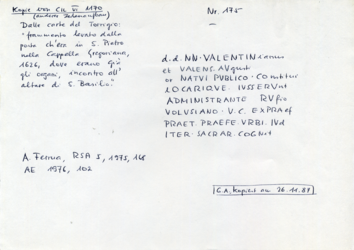 Kopie von CIL VI 1170
(andere Zeilenaufteilung)
Dalle carte del Torrigio:
"frammento levato dalla
porta ch'era in S. Pietro
nella Cappella Gregoriana,
1626, dove erano già
gli organi, incontro all'
altare di S. Basilio."
A. Ferrua, RSA 5, 1975, 168
AE 1976, 102
Nr. 175
d.d. NN. VALENTINianus
et VALENS. AUgusti
or NATUI PUBLICO. Constitui
LOCARIQUE. IUSSERUnt
ADMINISTRANTE RUfio
VOLUSIANO. V. C. EXPRAef
PRAET. PRAEFE URBI. IUd
ITER. SACRAR. COGNIT
G.A. kopiert am 26.11.81